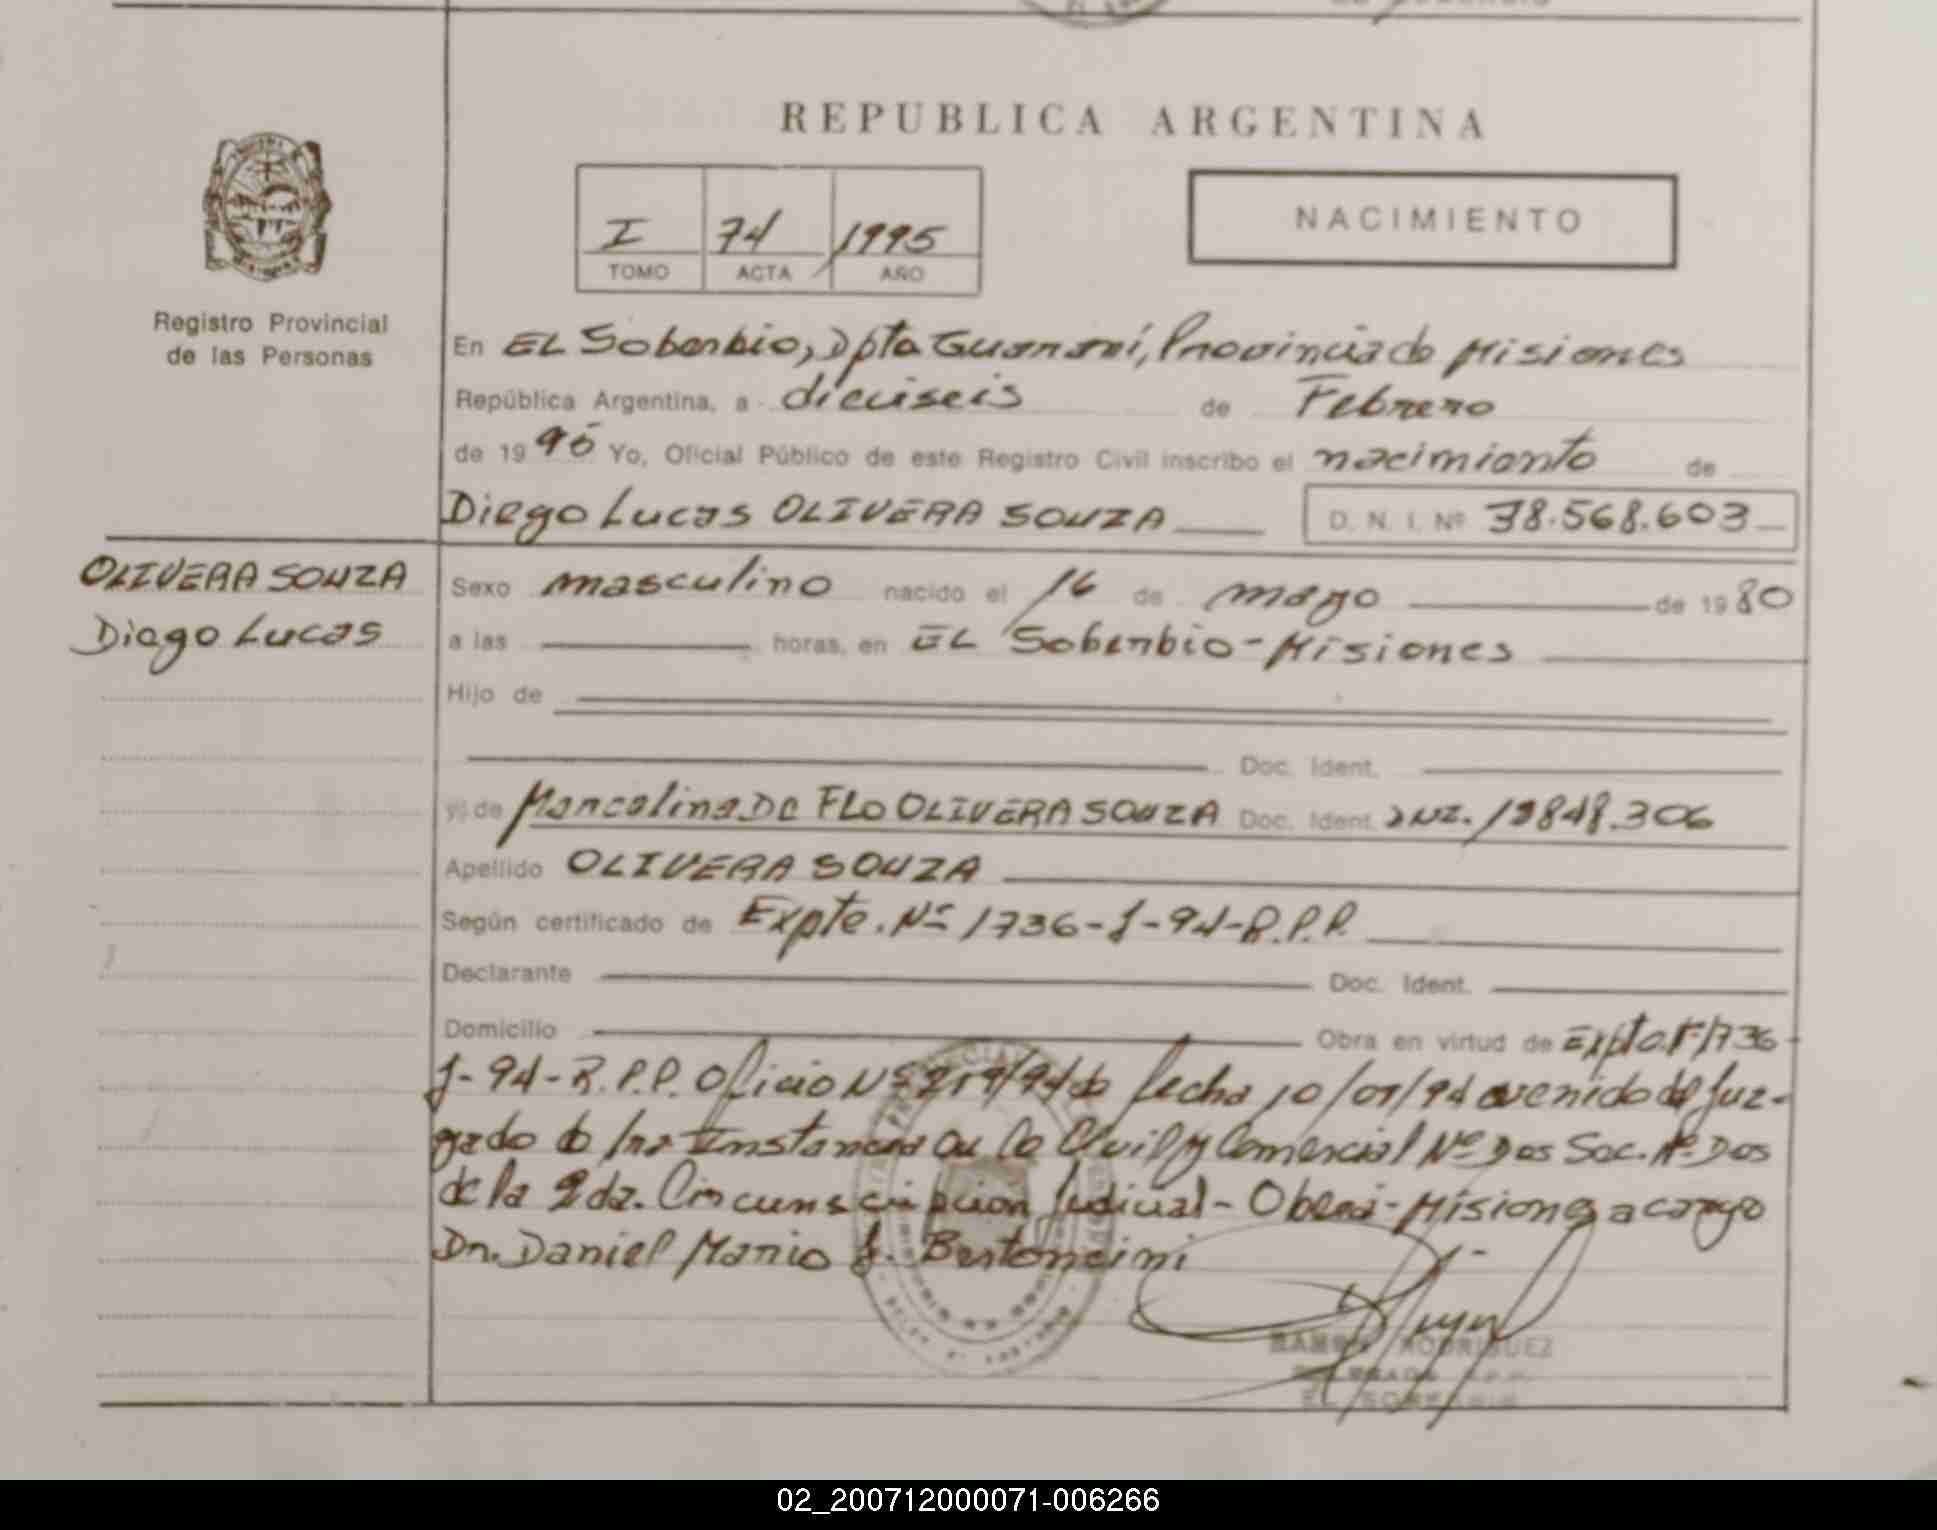 REPUBLICA ARGENTINA
I 74 1995
TOMO ACTA AÑO
NACIMIENTO
Registro Provincial
de las Personas
En EL Soberbio, Dpta Guaraní, Provincia de Misiones
República Argentina, a dieciseis de Febrero
de 19 95 Yo, Oficial Público de este Registro Civil inscribo el nacimiento de
Diego Lucas OLIVERA SOUZA D. N. I. Nº 38.568.603
OLIVERA SOUZA
Diego Lucas
Sexo masculino nacido el 16 de mayo de 19 80
a las horas, en EL Soberbio - Misiones
Hijo de
Doc. Ident.
y) de Marcelina De FLO OLIVERA SOUZA Doc. Ident. DNI. 18848.306
Apellido OLIVERA SOUZA
Según certificado de Expte. Nº 1736-J-94-R.P.P.
Declarante Doc. Ident.
Domicilio Obra en virtud de Expte. Nº 1736-
J-94-R.P.P. Oficio Nº 219/94 de fecha 10/07/94 venido del Juz-
gado de 1ra Instancia en lo Civil y Comercial Nº Dos Sec. Nº Dos
de la 2da. Circunscripcion Judicial - Oberá - Misiones a cargo
Dr. Daniel Mario J. Bertoncini
RAMON RODRIGUEZ
EL SOBERBIO
02_200712000071-006266